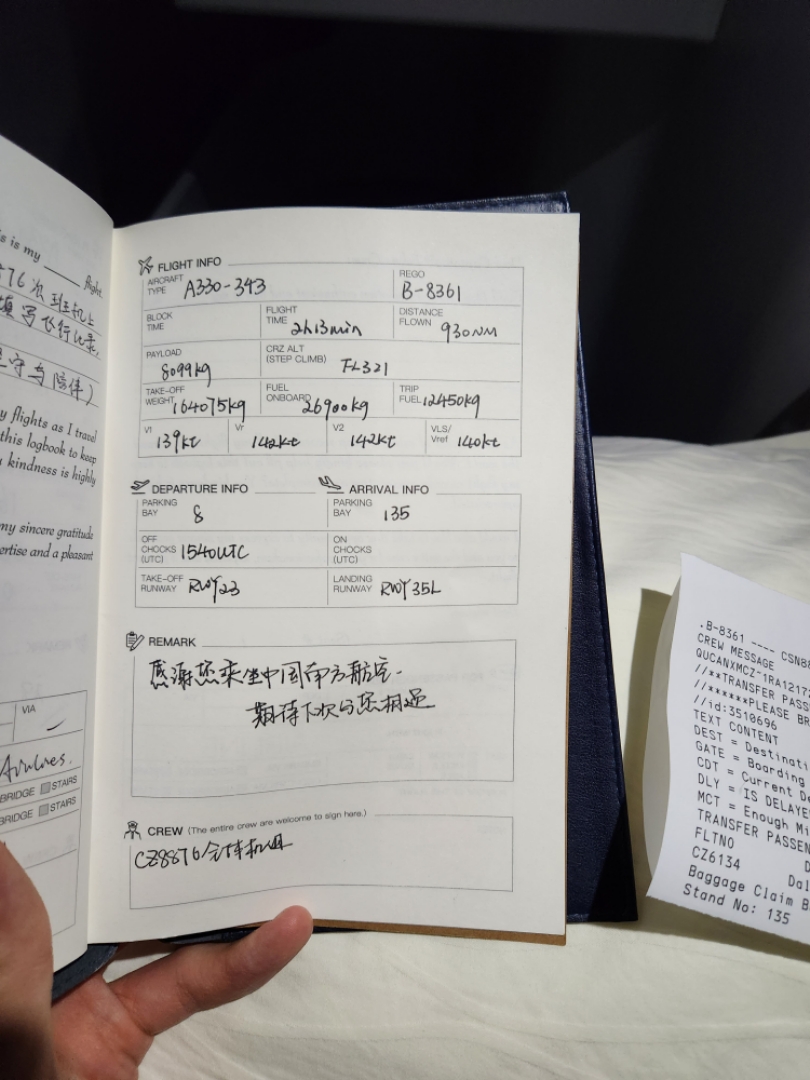 s is my ____ flight.
876次班机上
填写飞行记录,
坚守与陪伴)
y flights as I travel
this logbook to keep
kindness is highly
my sincere gratitude
ertise and a pleasant
VIA
Airlines.
BRIDGE STAIRS
BRIDGE STAIRS
FLIGHT INFO
AIRCRAFT TYPE A330-343
REGO B-8361
BLOCK TIME
FLIGHT TIME 2h13min
DISTANCE FLOWN 930NM
PAYLOAD 8099kg
CRZ ALT (STEP CLIMB) FL321
TAKE-OFF WEIGHT 164075kg
FUEL ONBOARD 26900kg
TRIP FUEL 12450kg
V1 139kt
Vr 142kt
V2 142kt
VLS/Vref 140kt
DEPARTURE INFO
PARKING BAY 8
OFF CHOCKS (UTC) 1540UTC
TAKE-OFF RUNWAY RWY23
ARRIVAL INFO
PARKING BAY 135
ON CHOCKS (UTC)
LANDING RUNWAY RWY35L
REMARK
感谢您乘坐中国南方航空.
期待下次与您相遇
CREW (The entire crew are welcome to sign here.)
CZ8876全体机组
.B-8361 ---- CSN88
CREW MESSAGE
QUCANXMCZ~1RA12172
//**TRANSFER PASS
//******PLEASE BR
//id:3510696
TEXT CONTENT
DEST = Destinati
GATE = Boarding
CDT = Current De
DLY = IS DELAYE
MCT = Enough Mi
TRANSFER PASSEN
FLTNO D
CZ6134 Dal
Baggage Claim B
Stand No: 135